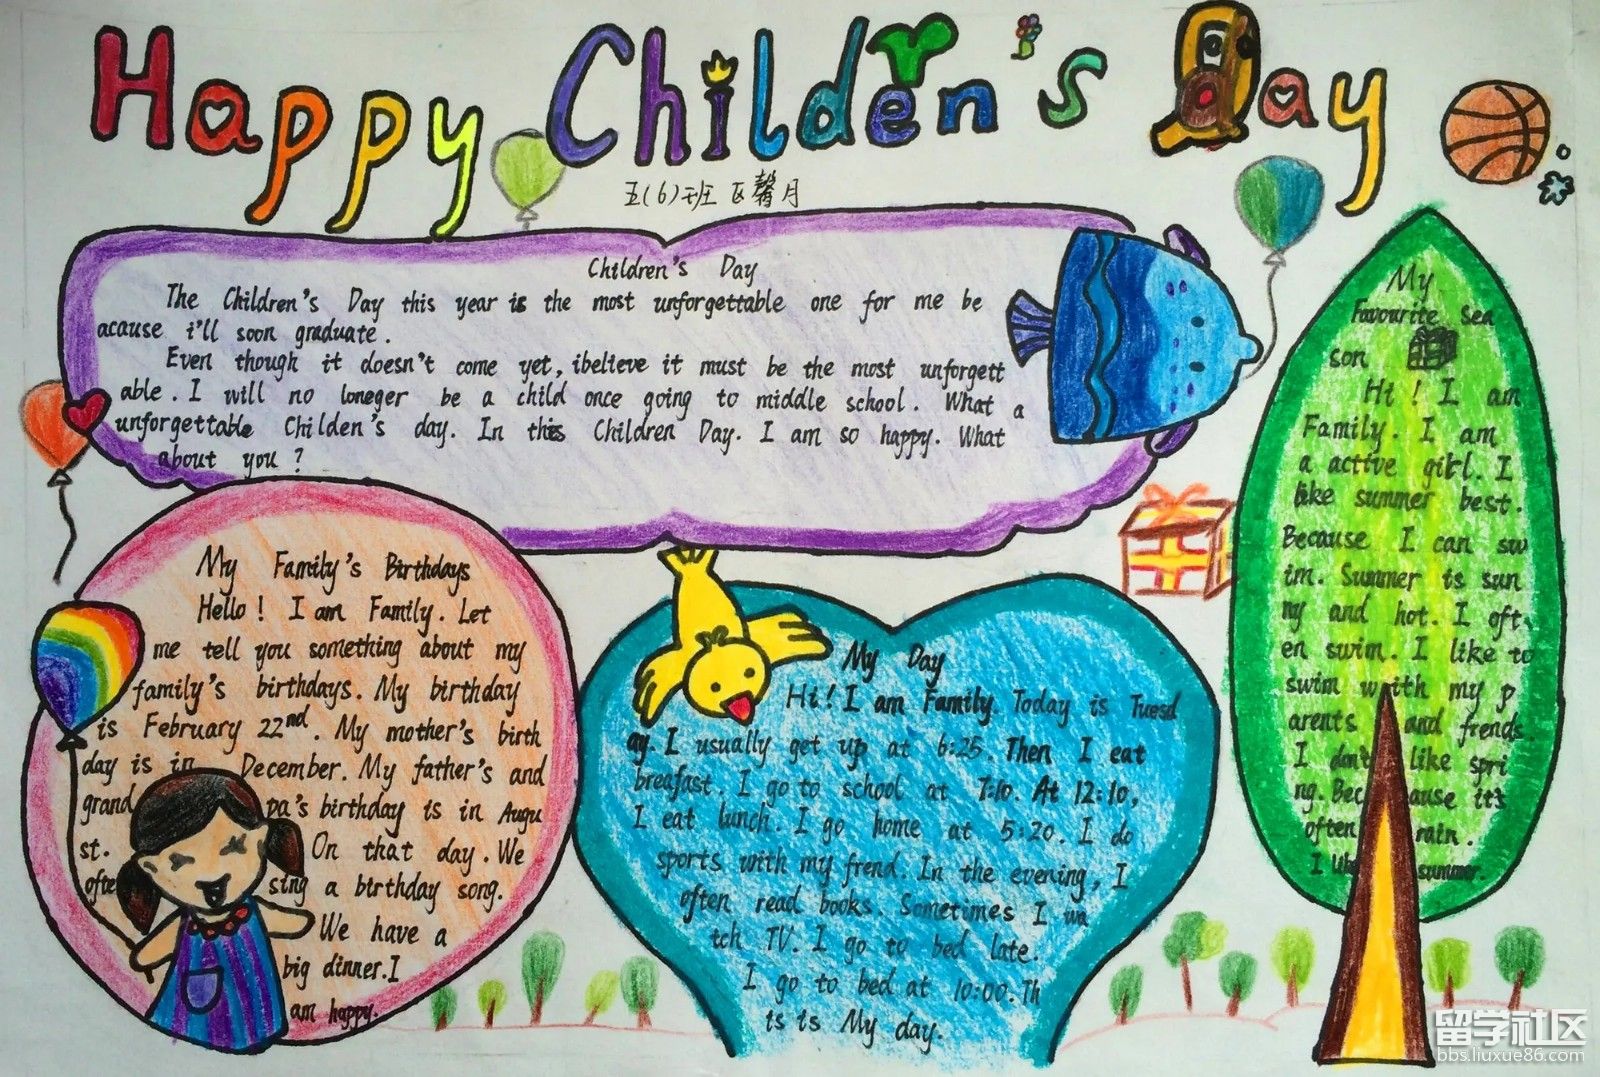 Happy Children's Day
五(6)班 区馨月
Children's Day
The Children's Day this year is the most unforgettable one for me be
acause i'll soon graduate.
Even though it doesn't come yet, ibelieve it must be the most unforgett
able. I will no loneger be a child once going to middle school. What a
unforgettable Childen's day. In this Children Day. I am so happy. What
about you?
My Family's Birthdays
Hello! I am Family. Let
me tell you something about my
family's birthdays. My birthday
is February 22nd. My mother's birth
day is in December. My father's and
grand pa's birthday is in Augu
st. On that day. We
ofte sing a birthday song.
We have a
big dinner. I
am happy.
My Day
Hi! I am Family. Today is Tuesd
ay. I usually get up at 6:25. Then I eat
breafast. I go to school at 7:10. At 12:10,
I eat lunch. I go home at 5:20. I do
sports with my frend. In the evening, I
often read books. Sometimes I wa
tch TV. I go to bed late.
I go to bed at 10:00. Th
is is My day.
My
Favourite Sea
son
Hi! I am
Family. I am
a active girl. I
like summer best.
Because I can sw
im. Summer is sun
ny and hot. I oft
en swim. I like to
swim with my p
arents and frends.
I don't like spri
ng. Bec ause it's
often rain.
I like summer.
留学社区
bbs.liuxue86.com